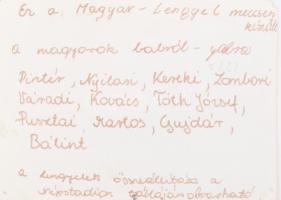 Ez a Magyar - Lengyel meccsen
készült
a magyarok balról - jobbra
Pintér, Nyilasi, Kereki, Zombori
Váradi, Kovács, Tóth József,
Pusztai Martos, Gujdár,
Bálint
a lengyelek összeállítása a
Népstadion tábláján olvasható.